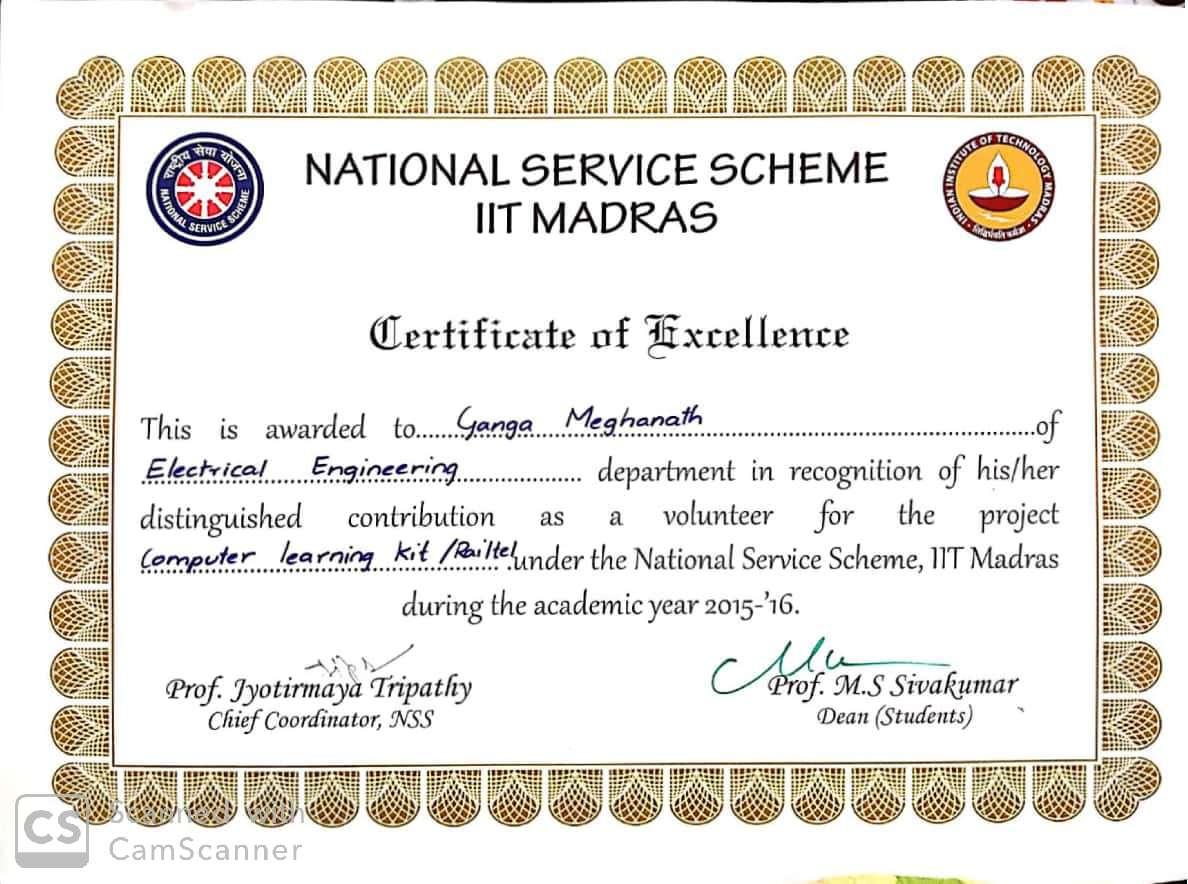 राष्ट्रीय सेवा योजना
NATIONAL SERVICE SCHEME
NATIONAL SERVICE SCHEME
IIT MADRAS
INDIAN INSTITUTE OF TECHNOLOGY MADRAS
Certificate of Excellence
This is awarded to......Ganga Meghanath......of
Electrical Engineering...... department in recognition of his/her
distinguished contribution as a volunteer for the project
Computer learning kit /Railtel under the National Service Scheme, IIT Madras
during the academic year 2015-'16.
Prof. Jyotirmaya Tripathy
Chief Coordinator, NSS
Prof. M.S Sivakumar
Dean (Students)
CS
Scanned with
CamScanner